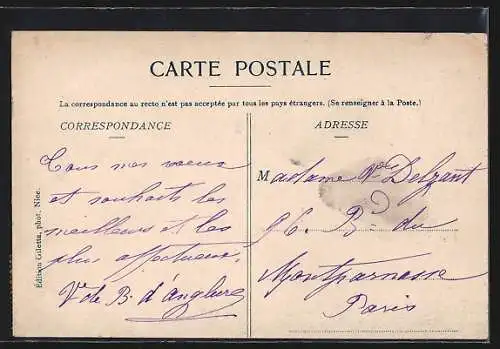 CARTE POSTALE
La correspondance au recto n'est pas acceptée par tous les pays étrangers. (Se renseigner à la Poste.)
CORRESPONDANCE
Tous nos vœux
et souhaits les
meilleurs et les
plus affectueux.
Vte B. d'Anglure
ADRESSE
Madame Ve Delzant
96. Bd du
Montparnasse
Paris
Édition Giletta, phot. Nice.